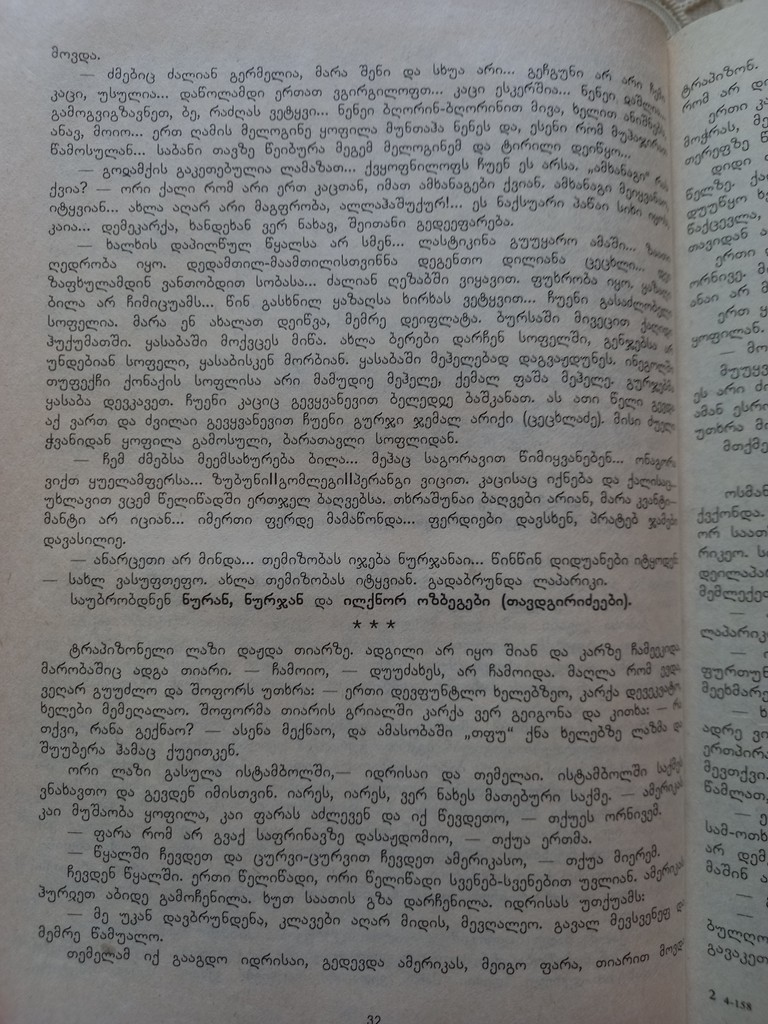 მოვდა.
— ძმებიც ძალიან გერმელია, მარა შენი და სხუა არი... გეჩგუნი არ არი ჩემი
კაცი, უსულია... დაწოლამდი ერთათ ვგირგილოფთ... კაცი ესკერშია... ნენეი
გამოგვიგზავნეთ, ბე, რაძღას ვეტყვი... ნენეი ბღორინ-ბღორინით მივა, ხელით
ანავ, მოიო... ერთ ღამის მელოგინე ყოფილა მუნთაჰა ნენეს და, ესენი რომ
წამოსულან... საბანი თავზე წეიბურა მეგემ მელოგინემ და ტირილი დეიწყო...
— გოდამქის გაკეთებულია ლამაზათ... ქვყოფნილოფს ჩუენ ეს არსა. „ამხანაგი“ რას
ქვია? — ორი ქალი რომ არი ერთ კაცთან, იმათ ამხანაგები ქვიან. ამხანაგი
იტყვიან... ახლა აღარ არი მაგფრობა, ალლაჰაშუქურ!... ეს ნაქსუარი პაწაი სიხი იყოს,
კაია... დემეკარქა, ხანდეხან ვერ ნახავ, შეითანი გედეეფარება.
— ხალხის დაპილწულ წყალსა არ სმენ... ლასტიკინა გუუყარო ამაში...
ღედრობა იყო. დედამთილ-მაამთილისთვინნა დეგენთო დილიანა ცეცხლი...
ზაფხულამდინ ვანთობდით სობასა... ძალიან ღეზაბში ვიყავით. ფუხრობა იყო,
ბილა არ ჩიმიცუამს... წინ გასხნილ ყაზაღსა ხირხას ვეტყვით... ჩუენი
სოფელია. მარა ენ ახალათ დეიწვა, მემრე დეიფლატა. ბურსაში მივეცით
ჰუქუმათში. ყასაბაში მოქვცეს მიწა. ახლა ბერები დარჩენ სოფელში, გენჯებსა არ
უნდებიან სოფელი, ყასაბისკენ მორბიან. ყასაბაში მეჰელებად დაგვაჟდუნეს.
თუფექჩი ქონაქის სოფლისა არი მამუდიე მეჰელე, ქემალ ფაშა მეჰელე.
ყასაბა დევკავეთ. ჩუენი კაციც გევყვანევით ბელედჲე ბაშკანათ. ას ათი წელი
აქ ვართ და ძვილაი გევყვანევით ჩუენი გურჯი ჯემალ არიქი (ცეცხლაძე). მისი
ჭვანიდან ყოფილა გამოსული, ბარათავლი სოფლიდან.
— ჩემ ძმებსა მეემსახურება ბილა... მეჰაც საგორავით წიმიყვანებენ...
ვიქთ ყუელამფერსა... ზუბუნი||გომლეგი||პერანგი ვიცით. კაცისაც იქნება და
უხლავით ვცემ წელიწადში ერთჯელ ბაღვებსა. თხრაშუნაი ბაღვები არიან, მარა კვანტი-
მანტი არ იციან... იმერთი ფერდე მამაწონდა... ფერდიები დავსხენ, პრატებ ჯამები
დავასილიე.
— ანარცეთი არ მინდა... თემიზობას იჯება ნურჯანაი... წინწინ დიდუანები იტყოდენ
— სახლ ვასუფთეფო. ახლა თემიზობას იტყვიან. გადაბრუნდა ლაპარიკი.
საუბრობდნენ ნურან, ნურჯან და ილქნორ ოზბეგები (თავდგირიძეები).
* * *
ტრაპიზონელი ლაზი დაჟდა თიარზე. ადგილი არ იყო შიან და კარზე
მარობაშიც ადგა თიარი. — ჩამოიო, — დუუძახეს, არ ჩამოიდა. მაღლა რომ
ვეღარ გუუძლო და შოფორს უთხრა: — ერთი დევფუნტლო ხელებზეო, კარქა
ხელები მემეღალაო. შოფორმა თიარის გრიალში კარქა ვერ გეიგონა და კითხა: — რა
თქვი, რანა გექნაო? — ასენა მექნაო, და ამასობაში „თფუ“ ქნა ხელებზე ლაზმა და
შუუბერა ჰამაც ქუეითკენ.
ორი ლაზი გასულა ისტამბოლში,— იდრისაი და თემელაი. ისტამბოლში
ვნახავთო და გევდენ იმისთვინ. იარეს, იარეს, ვერ ნახეს მათებური საქმე. —
კაი მუშაობა ყოფილა, კაი ფარას აძლევენ და იქ წევდეთო, — თქუეს ორნივემ.
— ფარა რომ არ გვაქ საფრინავზე დასაჟდომიო, — თქუა ერთმა.
— წყალში ჩევდეთ და ცურვი-ცურვით ჩევდეთ ამერიკასო, — თქუა მიერემ.
ჩევდენ წყალში. ერთი წელიწადი, ორი წელიწადი სვენებ-სვენებით უვლიან.
ჰურჲეთ აბიდე გამოჩენილა. ხუთ საათის გზა დარჩენილა. იდრისას უთქუამს:
— მე უკან დავბრუნდენა, კლავები აღარ მიდის, მევღალეო. გავალ მევსვენეფ
მემრე წამუალო.
თემელამ იქ გააგდო იდრისაი, გედევდა ამერიკას, მეიგო ფარა, თიარით
32
ტრაპიზონ.
რომ არ
ერთი
მოჭრას,
თერეფზე
დიდი
წელზე.
დუუწყო
ნაქცევლა,
თავიდან
ერთი
ორნივე.
ანაი არ
ერთ
ყოფილან.
— მო
მუუყ
ეს არი
ამან
უთხრა
მთქმე
ოსმან
ქვქონდა.
ორ
რიკეო.
დეილაპარ
მემლექე
ლაპარიკ
ფურთუნ
მეეხმარ
— ხ
ადრე
ერთპირ
მევთქვი.
წამლათ,
— ე
სამ-ოთხ
არ დემ
მაშინ
ბულღო
გავაკეთ
2 4-158